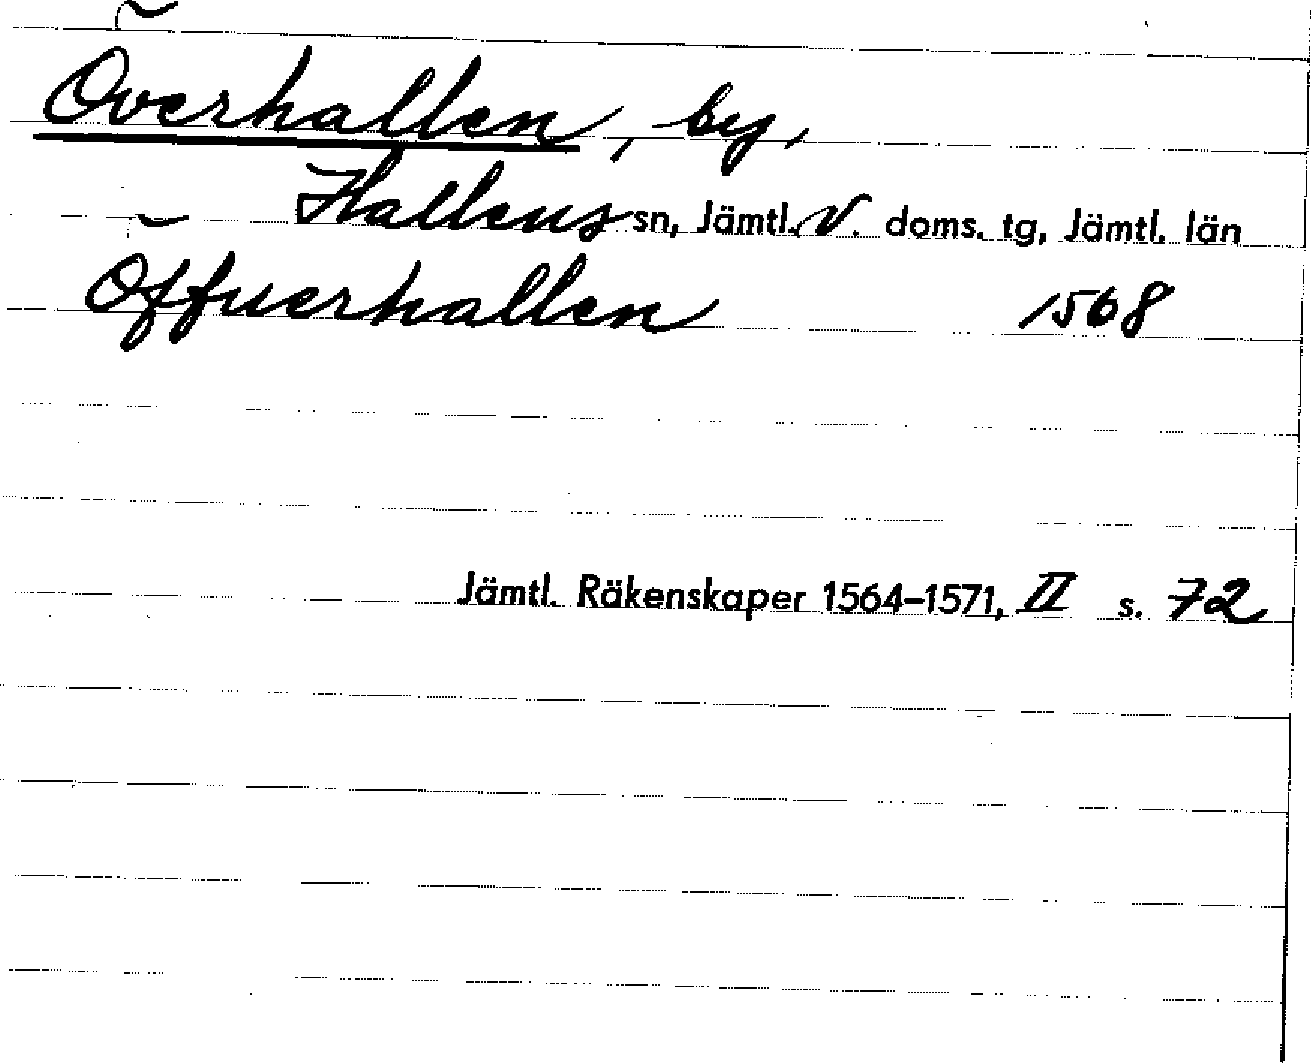 Överhallen, by,
Hallens sn, Jämtl. V. doms. tg, Jämtl. län
Öffuerhallen 1568
Jämtl. Räkenskaper 1564-1571, II s. 72